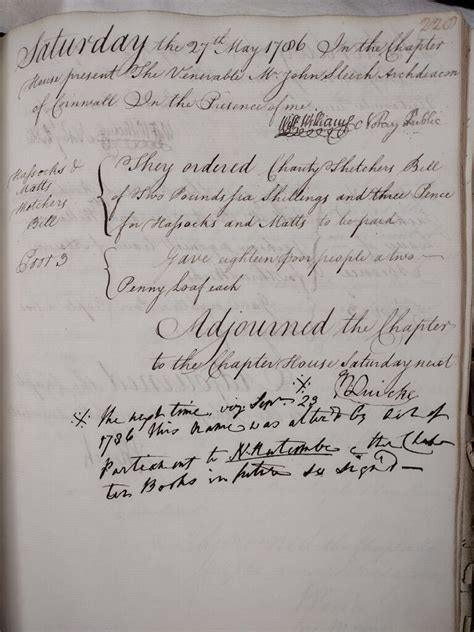 228
Saturday the 27th May 1786 In the Chapter
House present The Venerable Mr John Sleech Archdeacon
of Cornwall In the Presence of me
Wm Williams Notary Public
Hassocks &
Matts
Bill
They ordered Charity Bill
of Two Pounds six Shillings and three Pence
for Hassocks and Matts to be paid
Gave eighteen poor people a two
Penny Loaf each
Adjourned the Chapter
to the Chapter House Saturday next
Quicke
※ The next time, viz Sepr 23 ※
1786 this Name was alter'd by Act of
Parliament to N. Hutcombe & the Chap
ter Books in future so sign'd